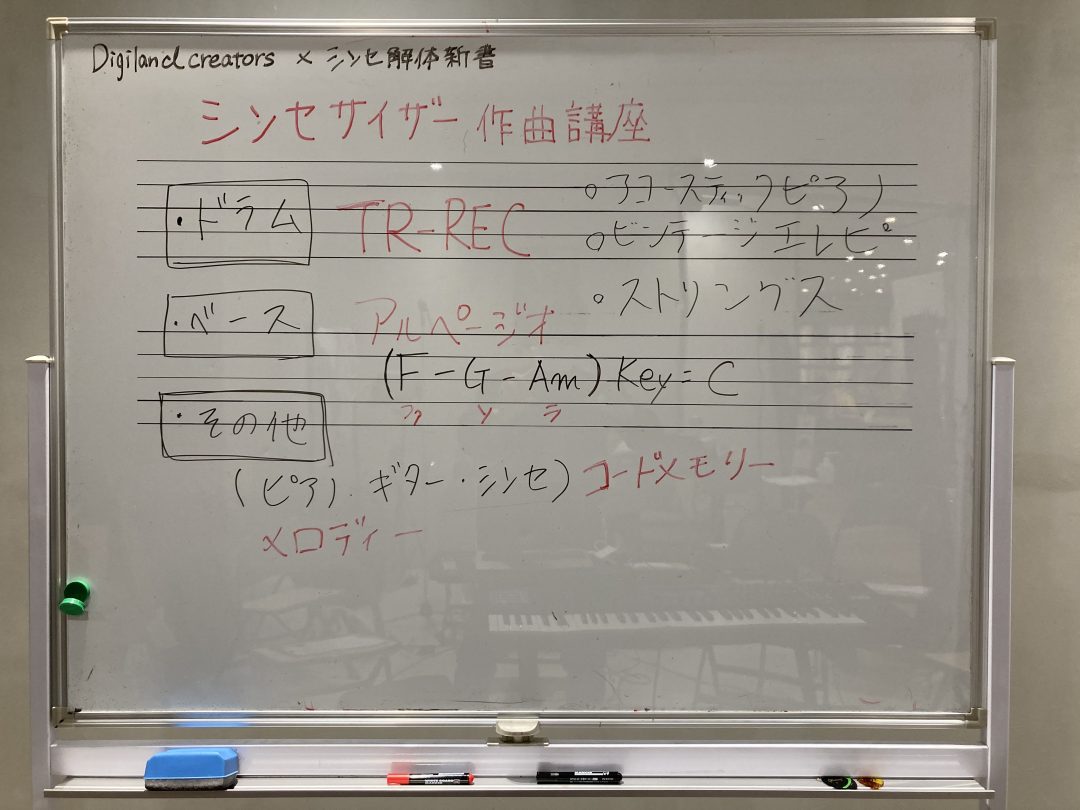 Digiland creators × シンセ解体新書
シンセサイザー作曲講座
・ドラム
TR-REC
○アコースティックピアノ
○ビンテージエレピ
○ストリングス
・ベース
アルページオ
(F-G-Am) Key=C
ファ ソ ラ
・その他
(ピアノ・ギター・シンセ) コードメモリー
メロディー